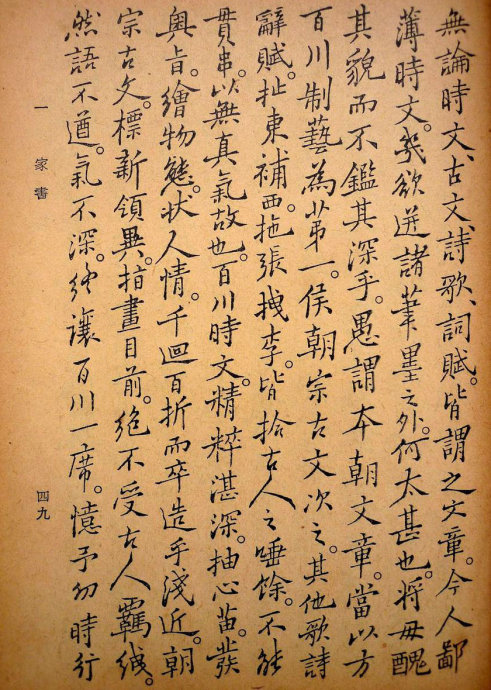 無論時文、古文、詩歌、詞賦。皆謂之文章。今人鄙
薄時文。幾欲迸諸筆墨之外。何太甚也。將毋醜
其貌而不鑑其深乎。愚謂本朝文章。當以方
百川制藝為苐一。侯朝宗古文次之。其他歌詩
辭賦。扯東補西拖張拽李。皆拾古人之唾餘。不能
貫串。以無真氣故也。百川時文。精粹湛深。抽心苗。發
奧旨。繪物態。狀人情。千迴百折而卒造乎淺近。朝
宗古文。標新領異。指畫目前。絕不受古人羈絏。
然語不遒。氣不深。終讓百川一席。憶予幼時行
一 家書 四九